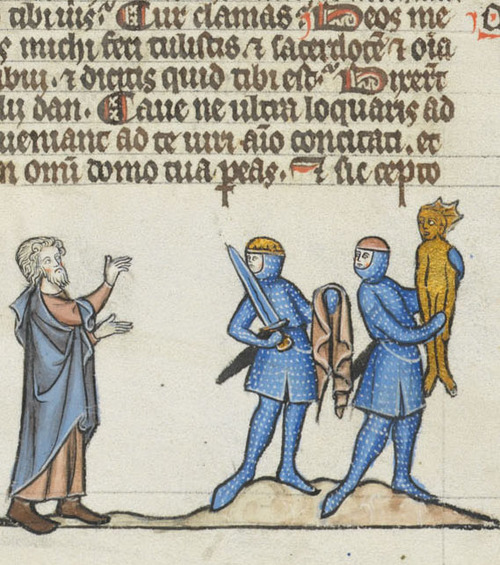 tibi uis? Cur clamas? Deos me
s michi feci tulistis ⁊ sacerdotē ⁊ oīa
bui. ⁊ dicitis quid tibi est? Dixerūt
lii dan. Caue ne ultra loquaris ad
ueniant ad te uiri aīo concitati. et
n omī domo tua ꝑeas. ⁊ sic cepto